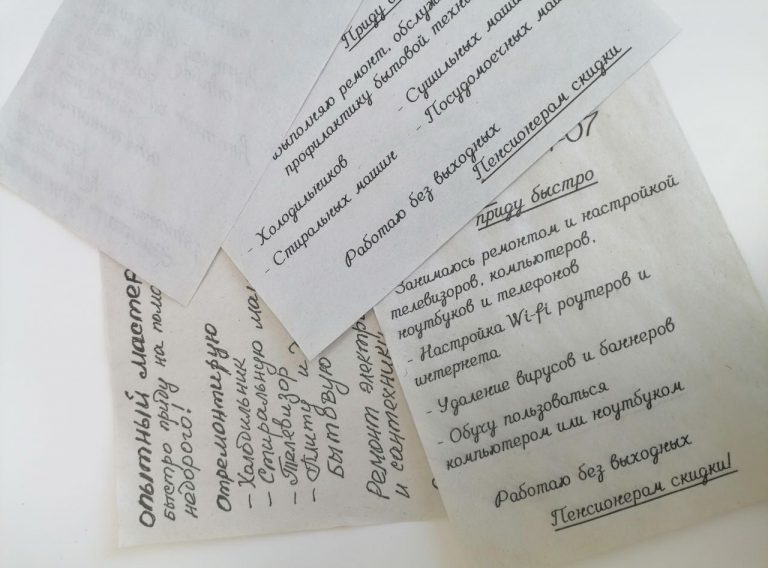 Приду
выполняю ремонт,
профилактику бытовой
- Холодильников
- Стиральных машин
- Сушильных
- Посудомоечных
Работаю без выходных
Пенсионерам скидки
-07
приду быстро
Занимаюсь ремонтом и настройкой
телевизоров, компьютеров,
ноутбуков и телефонов
- Настройка Wi-fi роутеров и
интернета
- Удаление вирусов и баннеров
- Обучу пользоваться
компьютером или ноутбуком
Работаю без выходных
Пенсионерам скидки!
опытный мастер
Быстро приду на
недорого!
отремонтирую
- Холодильник
- Стиральную
- Телевизор
- Плиту и
Бытовую
Ремонт
и сантехники